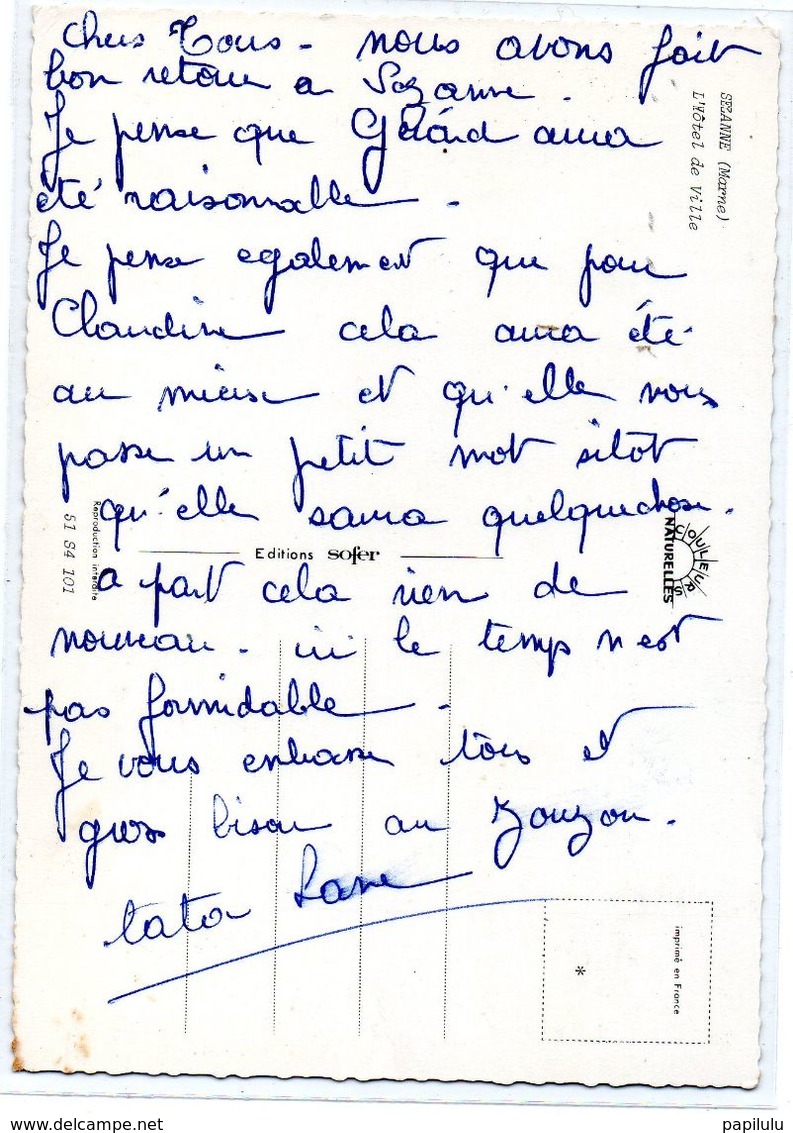 Chers Tous - nous avons fait
bon retour a Sézanne.
Je pense que Gérard aura
été raisonnable.
Je pense egalement que pour
Claudine cela aura été
au mieux et qu'elle vous
passe un petit mot sitot
qu'elle saura quelquechose.
a part cela rien de
nouveau. ici le temps n'est
pas formidable.
Je vous embrasse tous et
gros bisou au Zouzou.
tata
SEZANNE (Marne)
L'Hôtel de Ville
Reproduction interdite
51 S4 101
Editions sofer
COULEURS
NATURELLES
imprimé en France
*
www.delcampe.net
papilulu